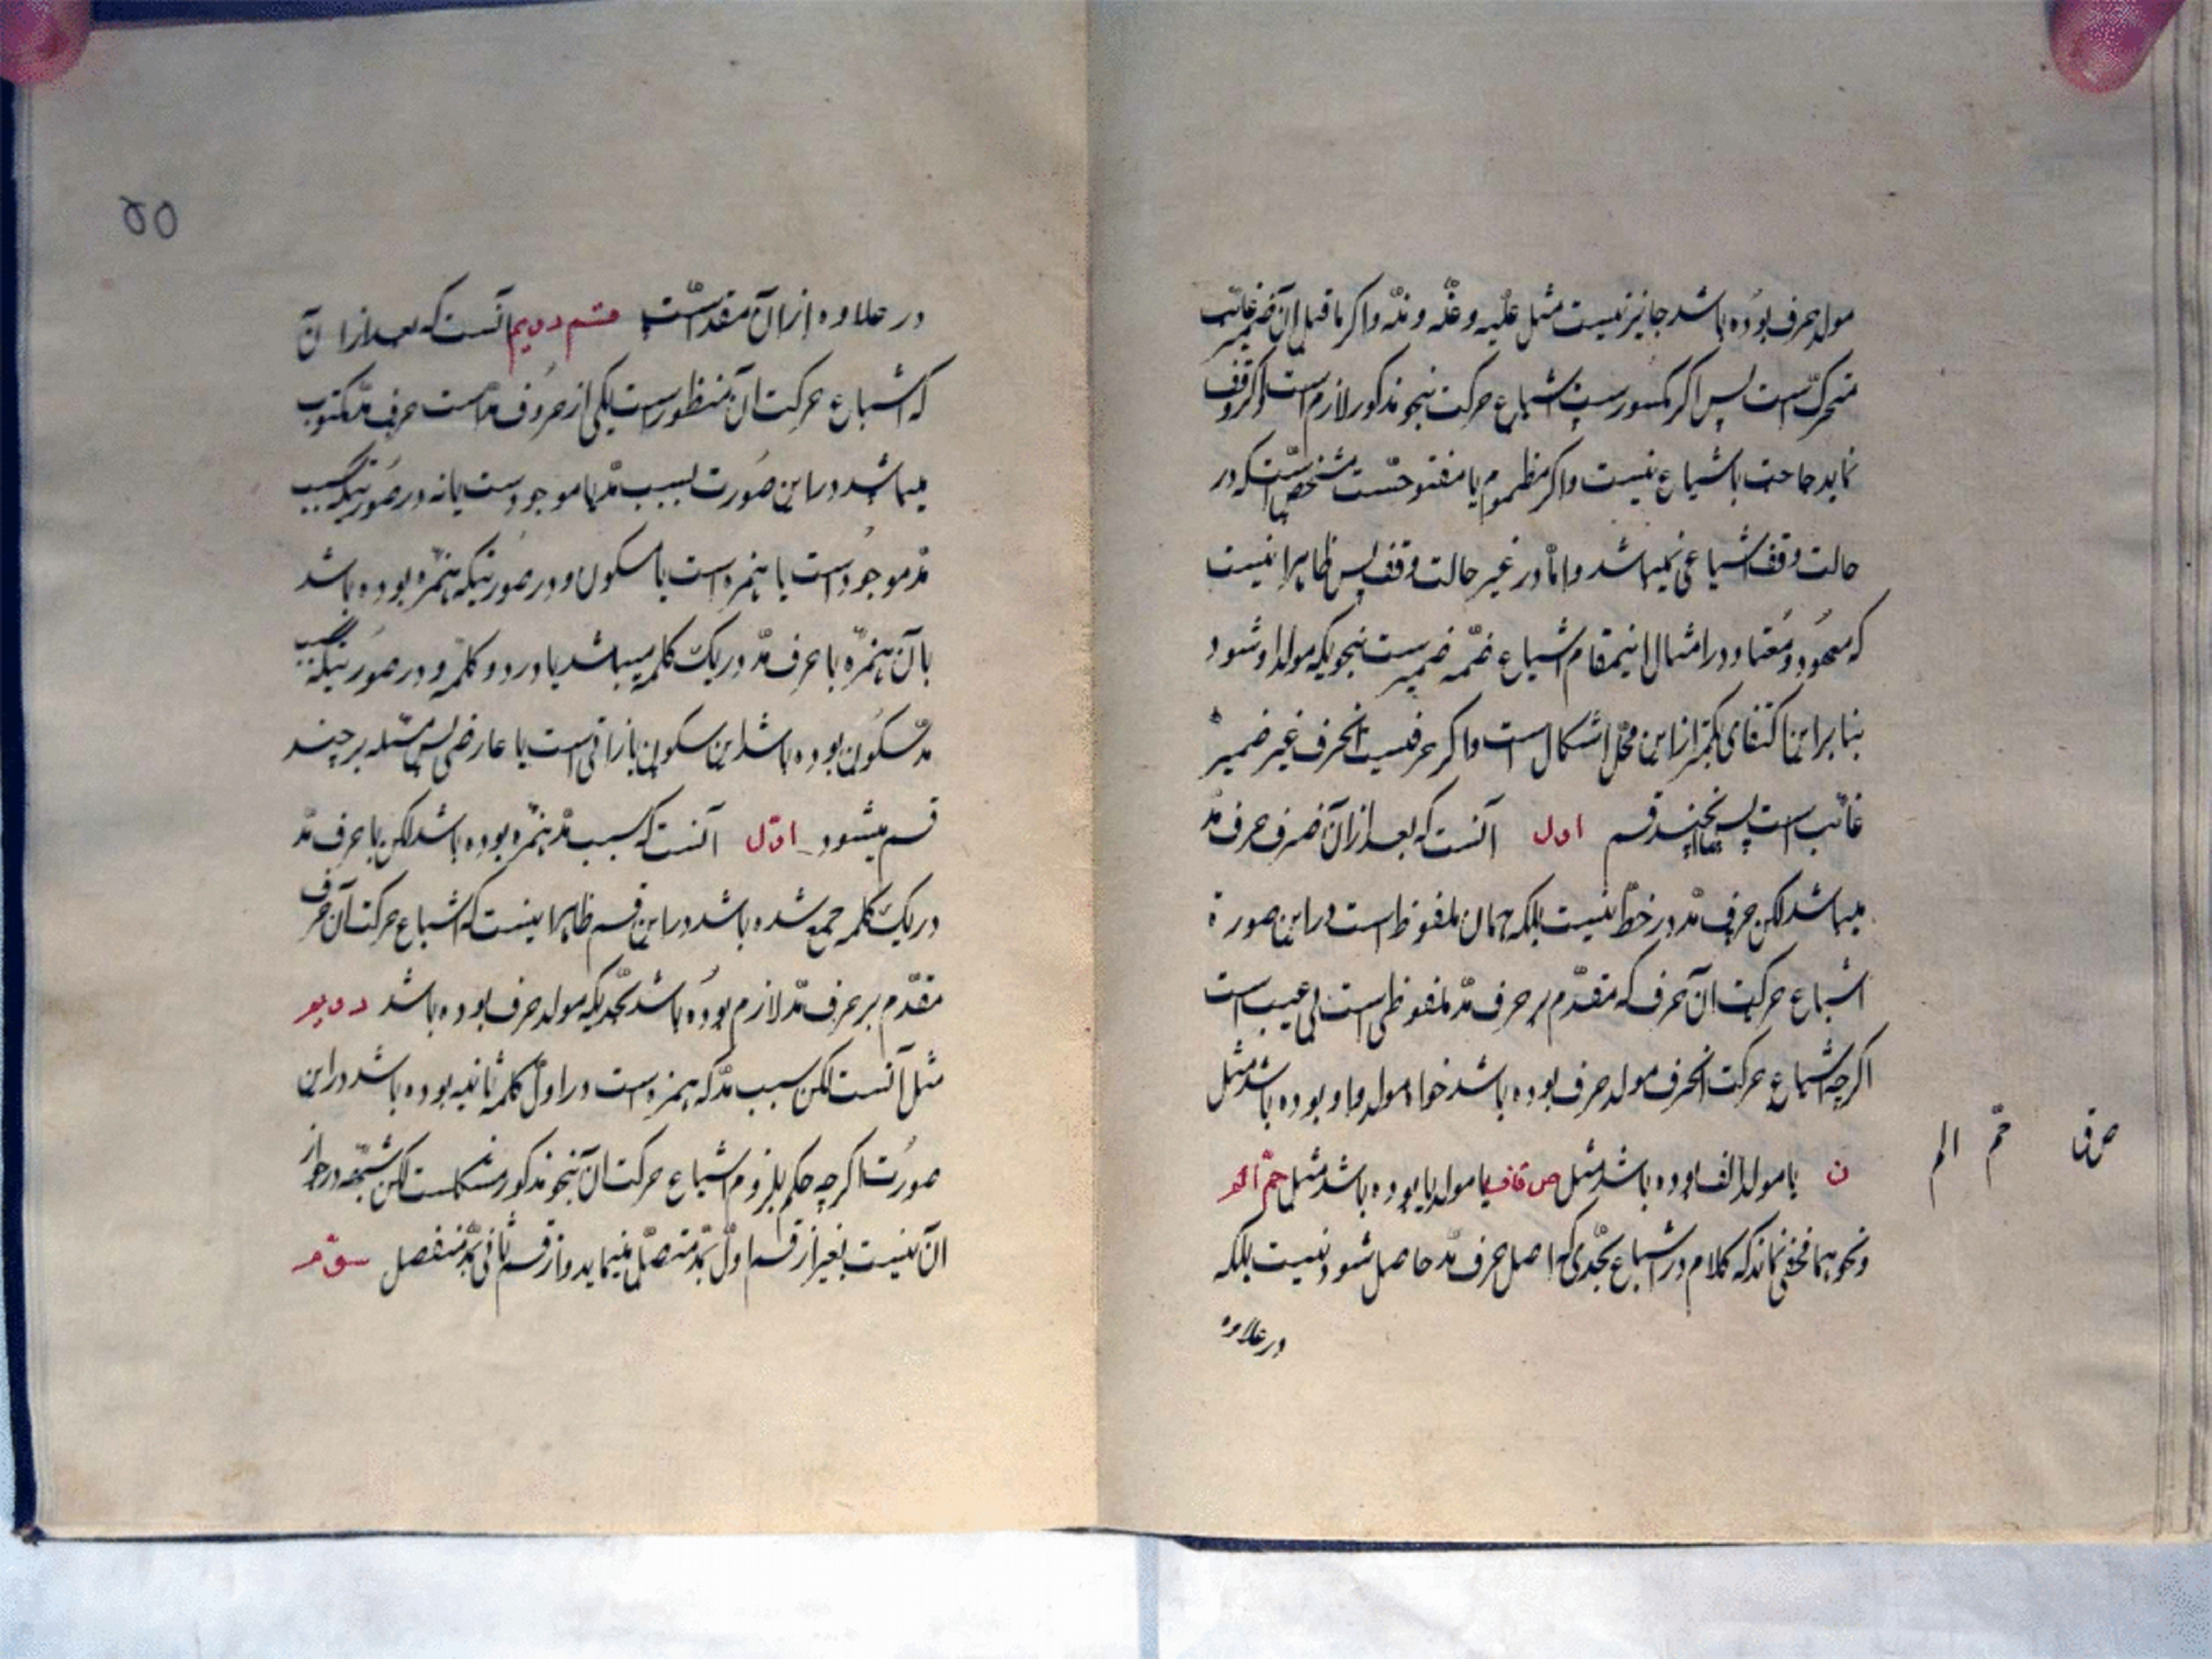 مولد حرف بوده باشد جایز نیست مثل علیه و عنه و منه و اکر ماقبل آن ضمیر غائب
متحرک است پس اکر مکسورست اشباع حرکت بنحو مذکور لازم است و اکر وقف
نماید حاجت باشباع نیست و اکر مظموم یا مفتوحست مشخص است که در
حالت وقف اشباعی نمیباشد و امّا در غیر حالت وقف پس ظاهرا نیست
که معهود و معتاد در امثال اینمقام اشباع ضمّه ضمیر ست بنحویکه مولد او شود
بنا براین اکتفای بکمتر از این محلّ اشکال است و اکر حرفیست انحرف غیر ضمیر
غائب است پس بچند قسم اول آنست که بعد از آن حرف حرف مد
میباشد لکن حرف مدّ در خطّ نیست بلکه همان ملفوظ است در این صورة
اشباع حرکت ان حرف که مقدّم بر حرف مدّ ملفوظی است بی عیب است
اکرچه اشباع حرکت انحرف مولد حرف بوده باشد خواه مولد واو بوده باشد مثل
ن یا مولد الف بوده باشد مثل ص قاف یا مولد یا بوده باشد مثل حمّ الم
و نحو هما مخفی نماند که کلام در اشباع بحدّی که اصل حرف مدّ حاصل شود نیست بلکه
در علاوه
ص ق حمّ الم
۵۵
در علاوه از آن مقدار است قسم دویم آنست که بعد از آن
که اشباع حرکت ان منظور است یکی از حروف مدّ است حرف مدّ مکتوب
میباشد در این صورت سبب مدّ یا موجود ست یا نه در صورتیکه سبب
مدّ موجود است یا همزه است یا سکون و در صورتیکه همزه بوده باشد
یا آن همزه با حرف مدّ در یک کلمه میباشد یا در دو کلمه و در صورتیکه سبب
مدّ سکون بوده باشد این سکون یا ذاتی است یا عارضی پس مسئله بر چند
قسم میشود اوّل آنست که سبب مدّ همزه بوده باشد لکن با حرف مدّ
در یک کلمه جمع شده باشد در این قسم ظاهرا نیست که اشباع حرکت آن حرف
مقدّم بر حرف مدّ لازم بوده باشد بحدّیکه مولد حرف بوده باشد دویم
مثل آنست لکن سبب مدّ که همزه است در اوّل کلمه ثانیه بوده باشد در این
صورت اکر چه حکم بلزوم اشباع حرکت ان بنحو مذکور مشکلست لکن شبهه در جواز
ان نیست تعبیر از قسم اوّل بمدّ متصّل مینماید و از قسم ثانی بمدّ منفصل سوّم